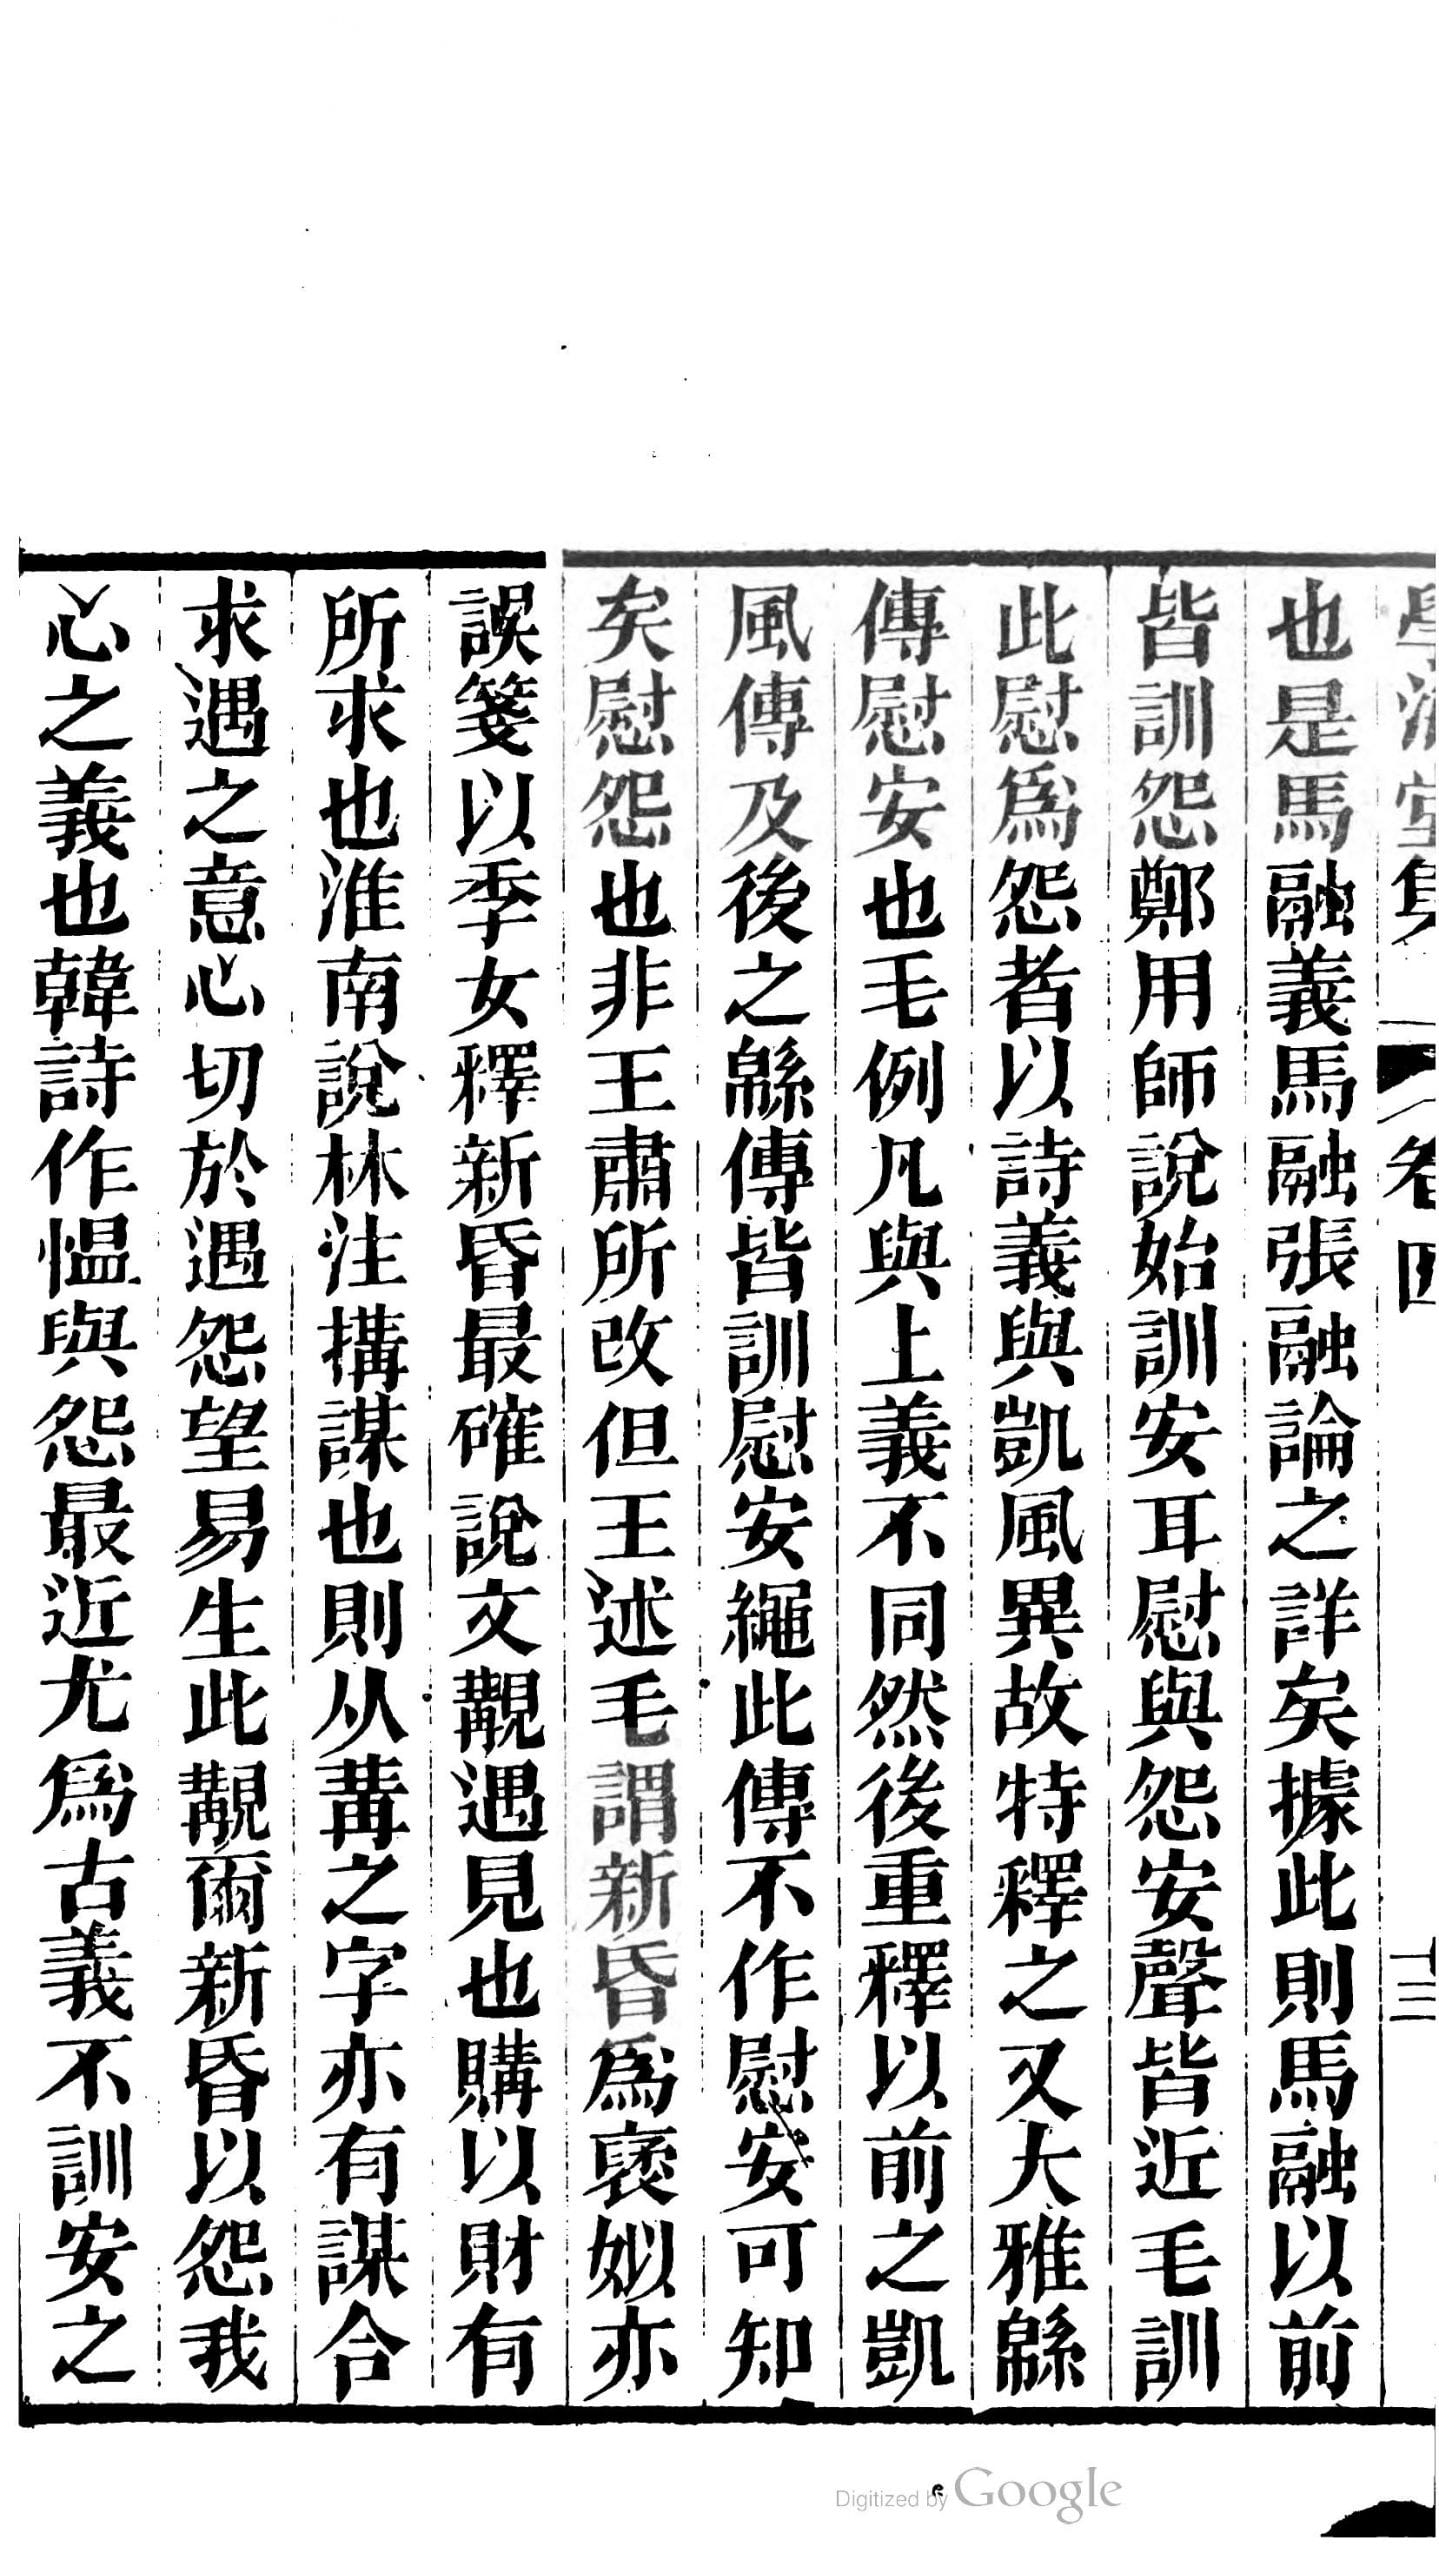 學海堂集 卷四 十三
也是馬融義馬融張融論之詳矣據此則馬融以前
皆訓怨鄭用師說始訓安耳慰與怨安聲皆近毛訓
此慰爲怨者以詩義與凱風異故特釋之又大雅緜
傳慰安也毛例凡與上義不同然後重釋以前之凱
風傳及後之緜傳皆訓慰安繩此傳不作慰安可知
矣慰怨也非王肅所改但王述毛謂新昏爲褒姒亦
誤箋以季女釋新昏最確說文覯遇見也購以財有
所求也淮南說林注搆謀也則从冓之字亦有謀合
求遇之意心切於遇怨望易生此覯爾新昏以怨我
心之義也韓詩作愠與怨最近尤爲古義不訓安之
Digitized by Google